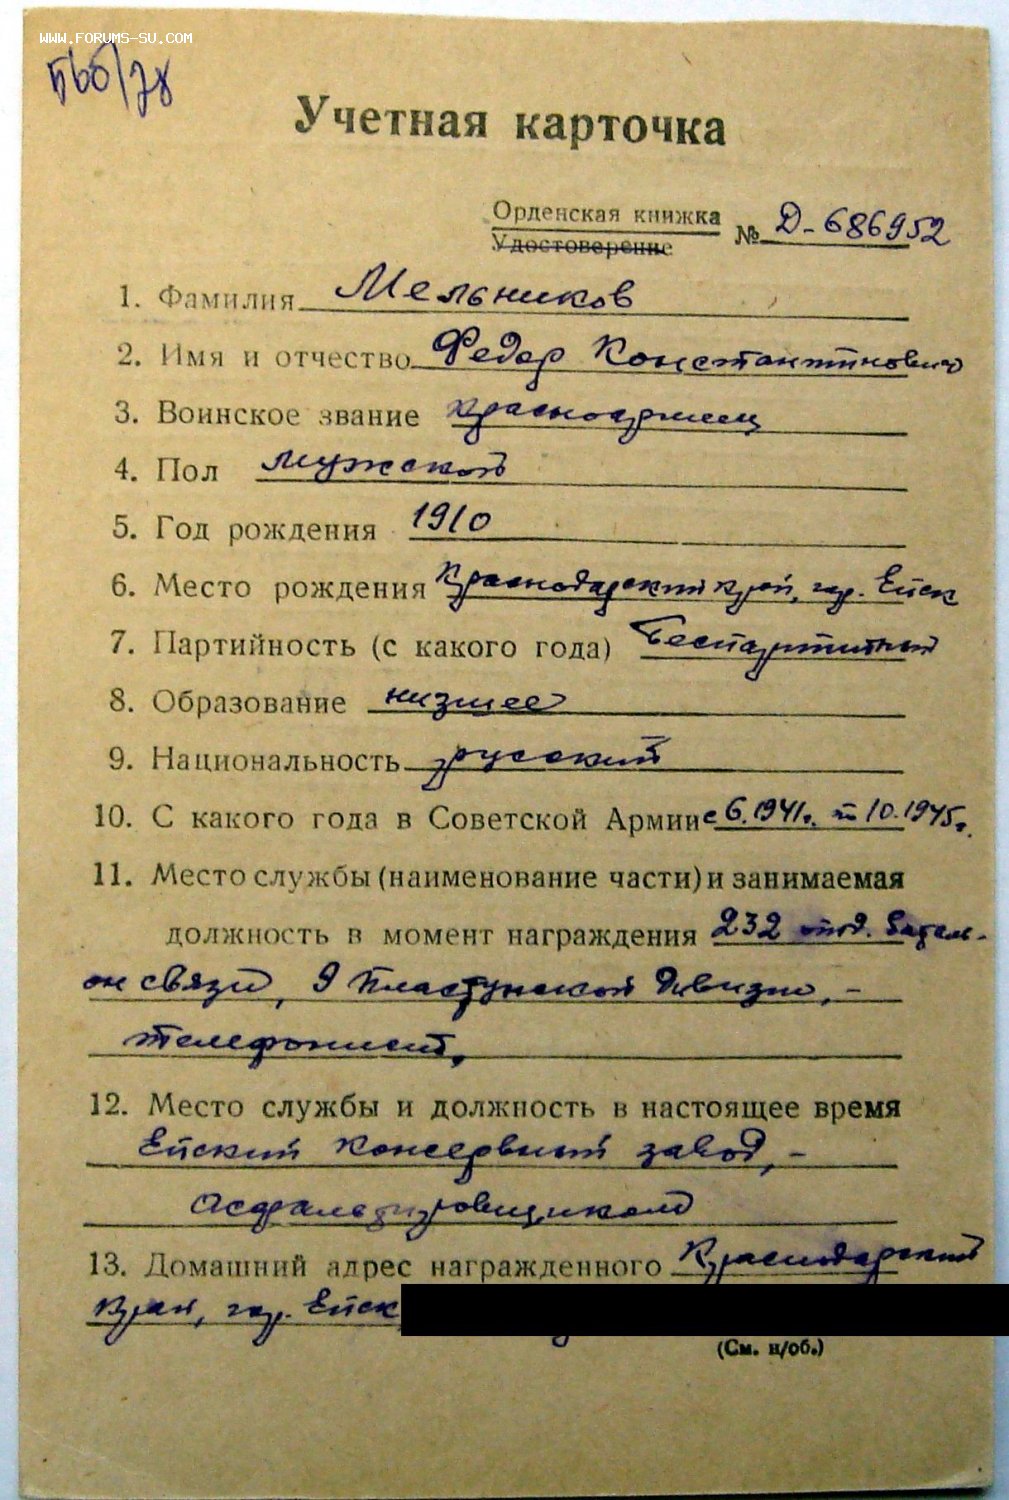 WWW.FORUMS-SU.COM
Учетная карточка
Орденская книжка
Удостоверение № Д-686952
1. Фамилия Мельников
2. Имя и отчество Федор Константинович
3. Воинское звание красноармеец
4. Пол мужской
5. Год рождения 1910
6. Место рождения Краснодарский край, гор. Ейск
7. Партийность (с какого года) Беспартийный
8. Образование низшее
9. Национальность русский
10. С какого года в Советской Армии с 6.1941г. по 10.1945г.
11. Место службы (наименование части) и занимаемая
должность в момент награждения 232 отд. батальон
он связи, 9 Пластунской дивизии, -
телефонист,
12. Место службы и должность в настоящее время
Ейский консервный завод, -
асфальтировщиком
13. Домашний адрес награжденного Краснодарский
край, гор. Ейск,
(См. н/об.)